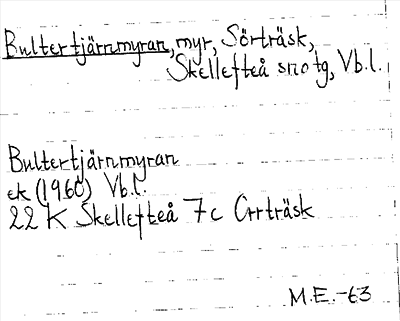 Bultertjärnmyran, myr, Sörträsk,
Skellefteå snotg, Vb.l.
Bultertjärnmyran
ek (1960) Vb.l.
22 K Skellefteå 7c Orrträsk
M.E.-63